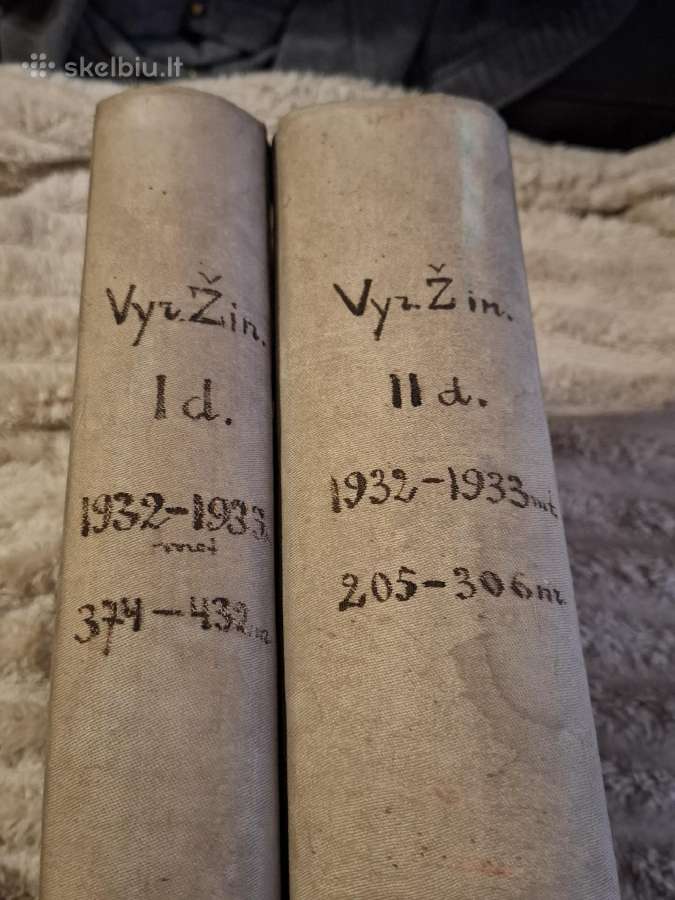 skelbiu.lt
Vyr. Žin.
I d.
1932-1933
met
374-432
Vyr. Žin.
II d.
1932-1933 mt.
205-306 nr.